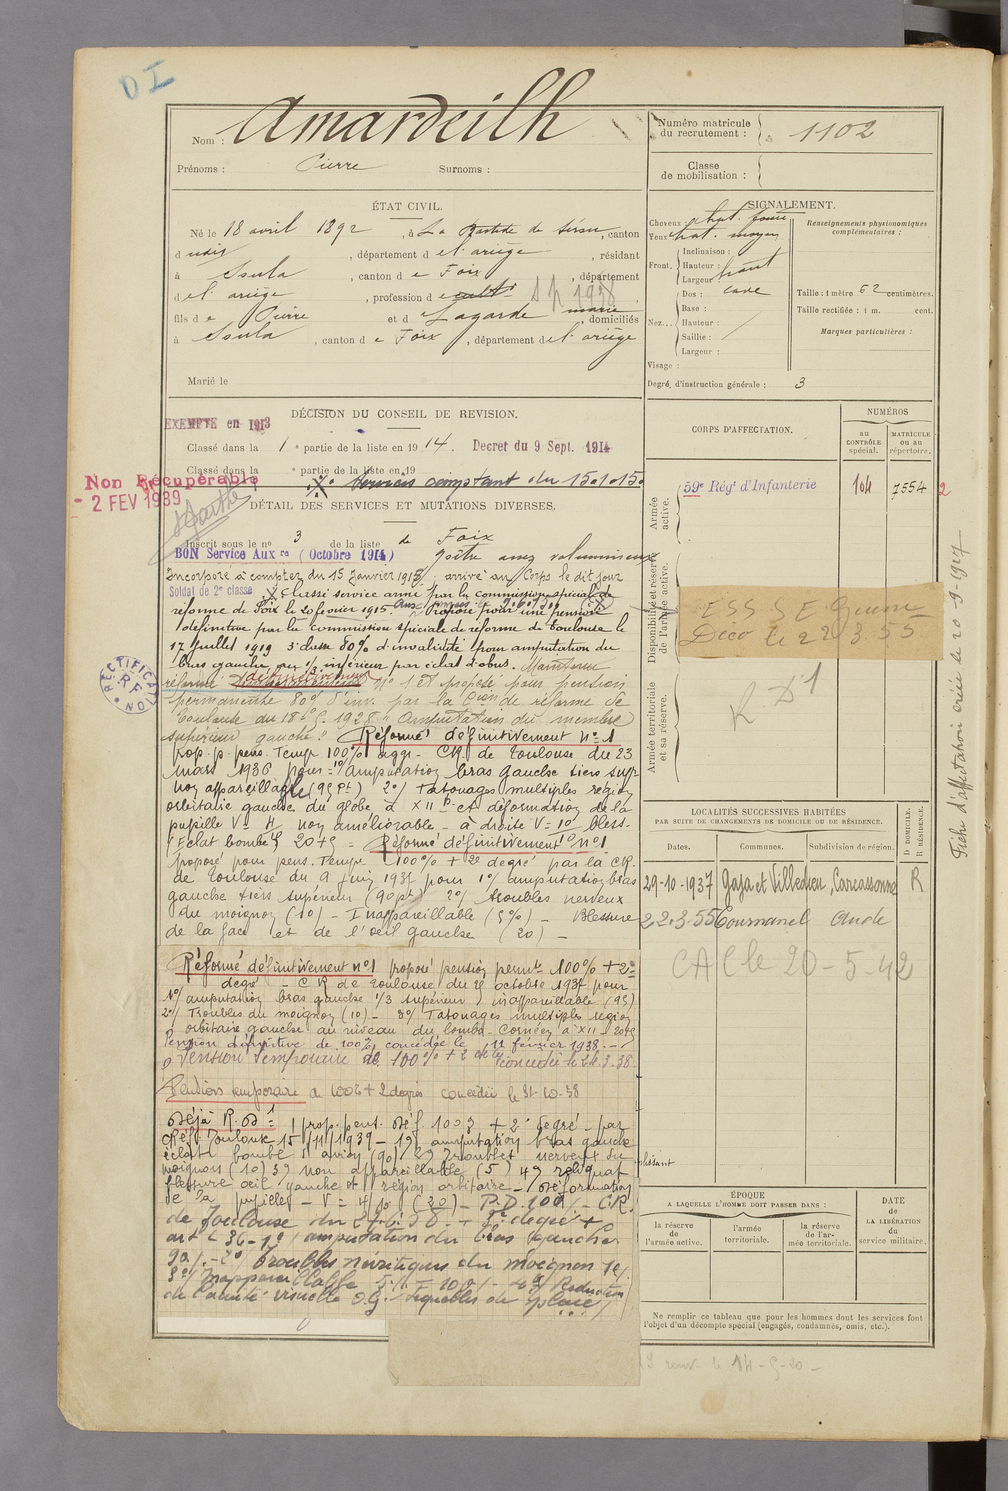 DI
Nom : Amardeilh
Prénoms : Pierre Surnoms :
Numéro matricule du recrutement : 1102
Classe de mobilisation :
ÉTAT CIVIL.
Né le 18 avril 1892, à La Bastide de Sérou, canton
d udis, département de l'ariège, résidant
à Ssula, canton de Foix, département
de l'ariège, profession de cultr
fils de Pierre et de Lagarde marie, domiciliés
à Ssula, canton de Foix, département de l'ariège
Marié le
SIGNALEMENT.
Cheveux chat. foncé
Yeux chat. moyen
Front. Inclinaison :
Hauteur : haut
Largeur
Nez... Dos : cave
Base :
Hauteur :
Saillie :
Largeur :
Visage :
Renseignements physionomiques complémentaires :
Taille : 1 mètre 62 centimètres.
Taille rectifiée : 1 m. cent.
Marques particulières :
Degré d'instruction générale : 3
DÉCISION DU CONSEIL DE REVISION.
EXEMPTÉ en 1913
Classé dans la 1e partie de la liste en 1914. Decret du 9 Sept. 1914
Classé dans la e partie de la liste en 19
Non Récupérable
- 2 FEV 1939
Services comptant du 15.1.15.
DÉTAIL DES SERVICES ET MUTATIONS DIVERSES.
Inscrit sous le no 3 de la liste de Foix
BON Service Auxre (Octobre 1914) goître assez volumineux
Incorporé à compter du 15 Janvier 1915, arrivé au Corps le dit jour
Soldat de 2e classe. Classé service armé par la commission spéciale de
réforme de Foix le 20 février 1915. Proposé pour une pension
définitive par la commission spéciale de réforme de Toulouse le
17 Juillet 1919 5e classe 80% d'invalidité pour amputation du
bras gauche au 1/3 inférieur par éclat d'obus. Maintenu
réformé définitivement No 1 et proposé pour pension
permanente 80% d'inv. par la Cion de réforme de
Toulouse du 18 1928 "Amputation du membre
supérieur gauche". Réformé définitivement No 1
prop. p. pens. Temp 100% aggr. CR. de Toulouse du 23
mars 1936 pour = 1o/ amputation bras gauche tiers supr
non appareillable (95 pt) 2o/ Tatouages multiples région
orbitaire gauche du globe à XII h et déformation de la
pupille V= non améliorable - à droite V=10 bless.
(Eclat bombe) 20+5 = Réformé définitivement no 1
proposé pour pens. Temp. 100% + 2e degré par la CR.
de Toulouse du 9 juin 1937 pour 1o/ amputation bras
gauche tiers supérieur (90pt) 2o/ troubles nerveux
du moignon (10) - Inappareillable (5%) - Blessure
de la face et de l'œil gauche (20) -
Réformé définitivement no 1 proposé pension permte 100% + 2e
degré - C R de Toulouse du 28 octobre 1937 pour
1o/ amputation bras gauche 1/3 supérieur inappareillable (95)
2o/ Troubles du moignon (10) - 3o/ Tatouages multiples région
orbitaire gauche au niveau du lombe - Cornéen à XII - 20+5
Pension définitive de 100% concédée le 11 février 1938.-
Pension Temporaire de 100% + 2 degré concédée le 24.3.38
Pension temporaire à 100% + 2 degrés concédée le 31-10-38
Déjà R.D 1 prop. pens. Déf. 100% + 2e degré - par
CR Toulouse 15/11/1939 - 1o) amputation bras gauche
éclat bombe d'avion (90) 2o) Troubles nerveux du
moignon (10) 3o non appareillable (5) 4o reliquat
blessure œil gauche et région orbitaire - Déformation
de la pupille - V = 4/50 (20) - P.D. 100% - CR
de Toulouse du 27.6.38 + 3e degré +
art L36 - 1o/ amputation du bras gauche
90% - 2o/ Troubles névritiques du moignon 10/
3o/ Inappareillable 5% - 100% - 4o/ Réduction
de l'acuité visuelle O.G. Séquelles de plaie
RECTIFICATION R F
CORPS D'AFFECTATION.
NUMÉROS
AU CONTRÔLE spécial.
MATRICULE OU AU répertoire.
Armée active.
59e Régt d'Infanterie 104 7554 2
Disponibilité et réserve de l'armée active.
ESS S E Guerre
Déco le 22 3.55
Armée territoriale et sa réserve.
R D 1
LOCALITÉS SUCCESSIVES HABITÉES
PAR SUITE DE CHANGEMENTS DE DOMICILE OU DE RÉSIDENCE.
Dates. Communes. Subdivision de région. D DOMICILE. R RÉSIDENCE.
29-10-1937 Gaja et Villedieu, Carcassonne R
22.3.55 Cournanel Aude
CAC le 20-5-42
ÉPOQUE
A LAQUELLE L'HOMME DOIT PASSER DANS :
la réserve de l'armée active.
l'armée territoriale.
la réserve de l'armée territoriale.
DATE DE LA LIBÉRATION du service militaire.
Ne remplir ce tableau que pour les hommes dont les services font
l'objet d'un décompte spécial (engagés, condamnés, omis, etc.).
Fiche d'affectation créée le 20-9-1927